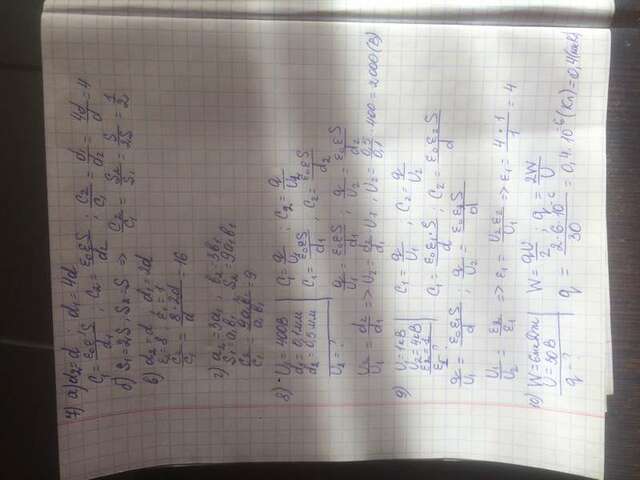 7) а) d₂=d ; d₁=4d
C₁=ε₀εS/d₁ , C₂=ε₀εS/d₂ ; C₂/C₁=d₁/d₂=4d/d=4
б) S₁=2S, S₂=S ⇒ C₂/C₁=S₂/S₁=S/2S=1/2
в) d₂=d , d₁=2d
ε₂=8 ; ε₁=1
C₂/C₁=8·2d/d=16
г) a₂=3a₁ , b₂=3b₁
S₁=a₁b₁ , S₂=9a₁b₁
C₂/C₁=9a₁b₁/a₁b₁=9
8) U₁=400В C₁=q/U₁ ; C₂=q/U₂
d₁=0,1мм C₁=ε₀εS/d₁ , C₂=ε₀εS/d₂
d₂=0,5мм
U₂=? q/U₁=ε₀εS/d₁ ; q/U₂=ε₀εS/d₂
U₂/U₁=d₂/d₁ => U₂=d₂/d₁·U₁ , U₂=0,5/0,1·400=2000(В)
9) U₁=1кВ C₁=q/U₁ , C₂=q/U₂
U₂=4кВ
ε₂=1 C₁=ε₀ε₁·S/d ; C₂=ε₀ε₂S/d
ε₁-?
q/U₁=ε₀ε₁S/d ; q/U₂=ε₀ε₂S/d
U₁/U₂=ε₂/ε₁ => ε₁=U₂ε₂/U₁ => ε₁=4·1/1=4
10) W=6мкДж W=qU/2 ; q=2W/U
U=30В
q-? q=2·6·10⁻⁶/30=0,4·10⁻⁶(Кл)=0,4(мкКл)